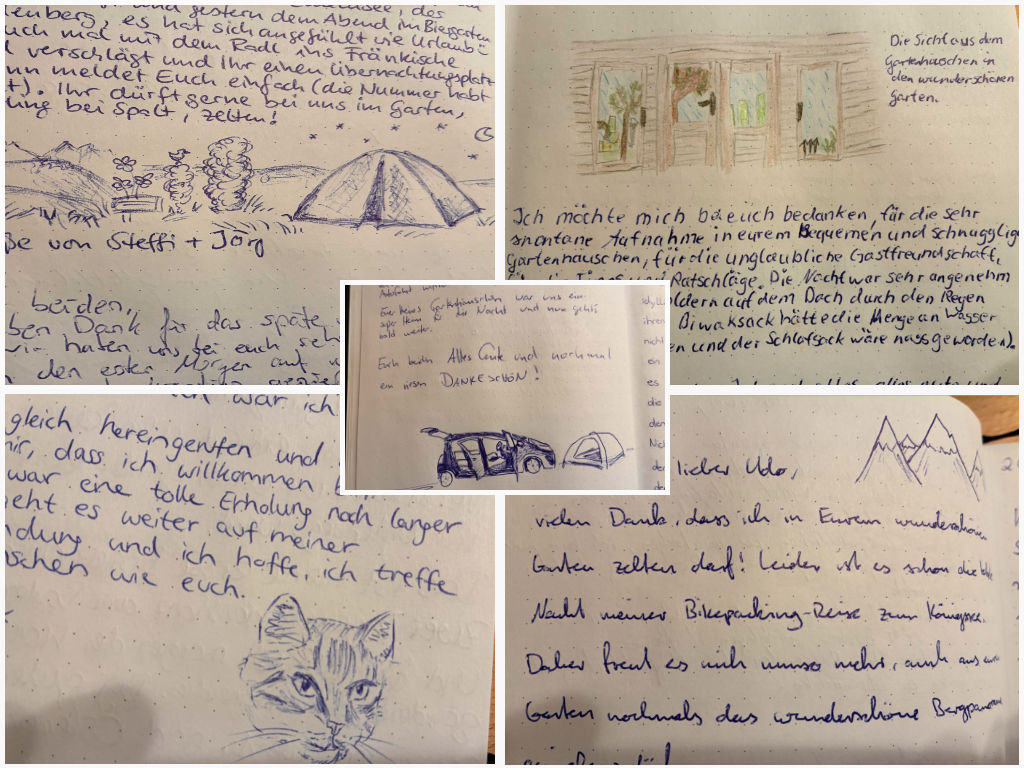 lenberg, es hat sich angefühlt wie Urlaub
uch mal mit dem Radl ins Fränkische
verschlägt und Ihr einen Übernachtungsplatz
nn meldet Euch einfach (die Nummer habt
t). Ihr dürft gerne bei uns im Garten,
ung bei Spalt, zelten!
ße von Steffi + Jörg
beiden,
ben Dank für das späte
wir haben uns bei euch seh
den ersten Morgen auf
Die Sicht aus dem
Gartenhäuschen in
den wunderschönen
Garten.
Ich möchte mich bei euch bedanken, für die sehr
spontane Aufnahme in eurem Bequemen und schnuggligen
Gartenhäuschen, für die unglaubliche Gastfreundschaft,
Ratschläge. Die Nacht war sehr angenehm
ldern auf dem Dach durch den Regen
Biwaksack hätte die Menge an Wasser
en und der Schlafsack wäre nass geworden).
Euer kleines Gartenhäuschen war uns ein
super Heim für die Nacht und nun gehts
bald weiter.
Euch beiden Alles Gute und nochmal
ein riesen DANKESCHÖN!
war ich
gleich hereingerufen und
mir, dass ich willkommen
war eine tolle Erholung nach langer
geht es weiter auf meiner
ndung und ich hoffe, ich treffe
schen wie euch.
lieber Udo,
vielen Dank, dass ich in Eurem wunderschönen
Garten zelten darf! Leider ist es schon die letzte
Nacht meiner Bikepacking-Reise zum Königssee.
Daher freut es mich umso mehr, auch aus eurem
Garten nochmals das wunderschöne Bergpanorama